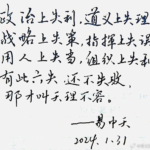 政治上失利，道义上失
战略上失策，指挥上失误
用人上失当，组织上失
有此六失还不失败，
那才叫天理不容。
——易中天
2024.1.31